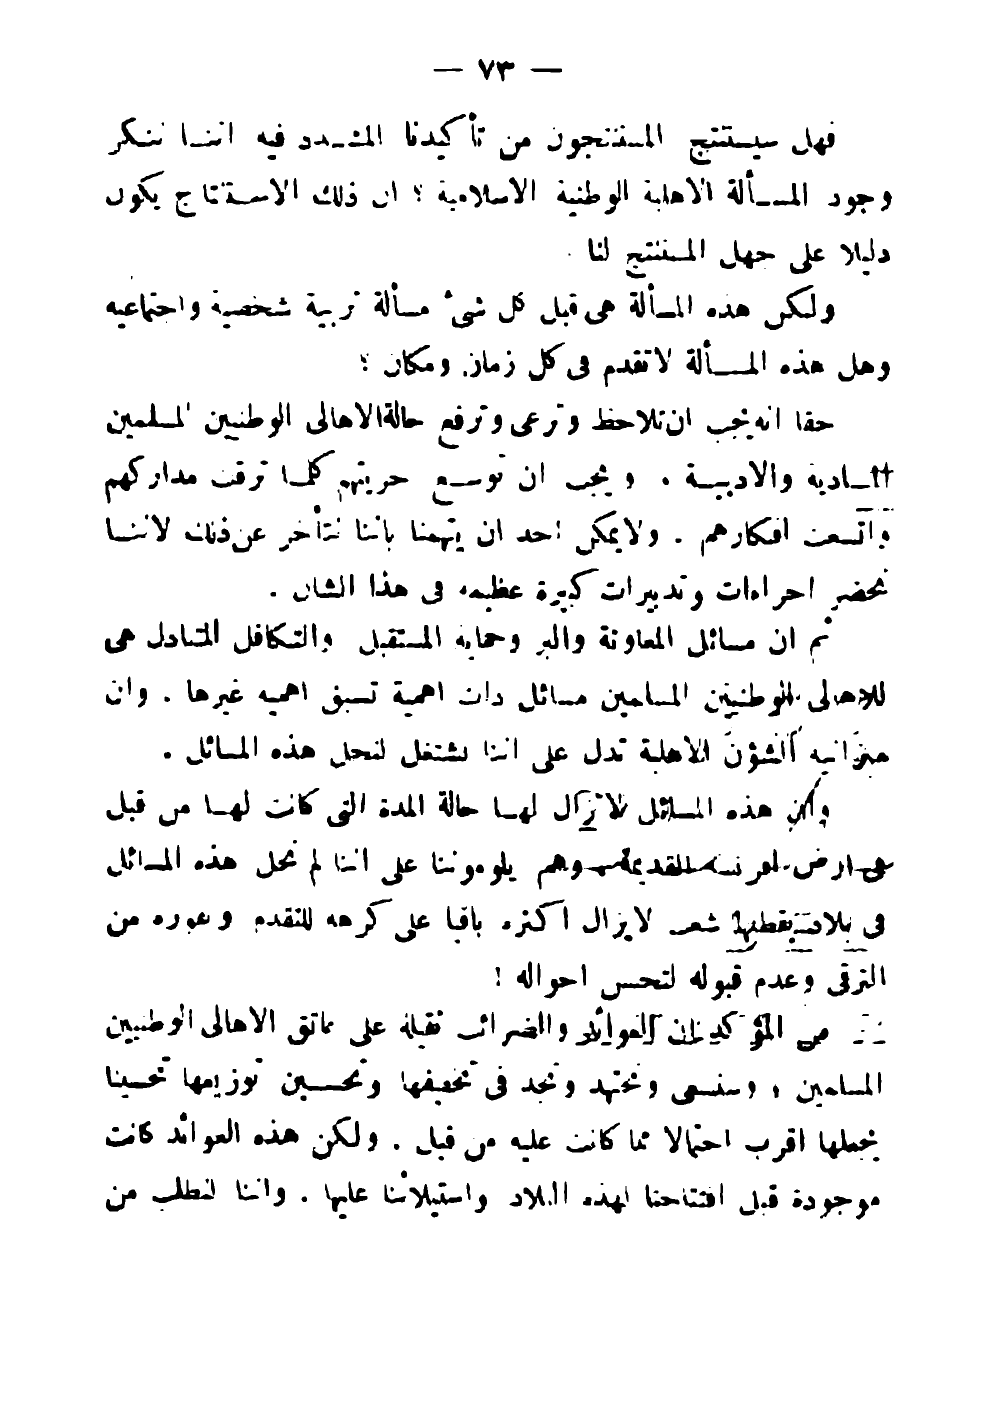 — ٧٣ —
فهل سيستنتج المستنتجون من تأكيدنا المشدد فيه اننا ننكر
وجود المسألة الاهلية الوطنية الاسلامية ؟ ان ذلك الاستنتاج يكون
دليلا على جهل المستنتج لنا .
ولكن هذه المسألة هى قبل كل شئ مسألة تربية شخصية واجتماعيه
وهل هذه المسألة لا تتقدم فى كل زمان ومكان ؟
حقا انه يجب ان تلاحظ وترعى وترفع حالة الاهالى الوطنيين المسلمين
المادية والادبية . ويجب ان توسع حريتهم كلما ترقت مداركهم
واتسعت افكارهم . ولا يمكن احد ان يتهمنا باننا نتأخر عن ذلك لاننا
نحضر اجراءات وتدبيرات كبيرة عظيمه فى هذا الشان .
ثم ان مسائل المعاونة والبر وحماية المستقبل والتكافل المتبادل هى
للاهالى الوطنيين المسلمين مسائل ذات اهمية تسبق اهميه غيرها . وان
ميزانيه الشؤن الاهلية تدل على اننا نشتغل لنحل هذه المسائل .
ولكن هذه المسائل لا تزال لها حالة المدة التى كانت لها من قبل
فى ارض فرنسا القديمة وهم يلوموننا على اننا لم نحل هذه المسائل
فى بلاد يقطنها شعب لا يزال اكثره باقيا على كرهه للتقدم ونفوره من
الترقى وعدم قبوله لتحسن احواله !
من المؤكد ان العوائد والضرائب ثقيلة على عاتق الاهالى الوطنيين
المسلمين ، وسنسعى ونجتهد ونجد فى تخفيفها وتحسين توزيعها تحسينا
يجعلها اقرب احتمالا مما كانت عليه من قبل . ولكن هذه العوائد كانت
موجودة قبل افتتاحنا لهذه البلاد واستيلائنا عليها . واننا لنطلب من